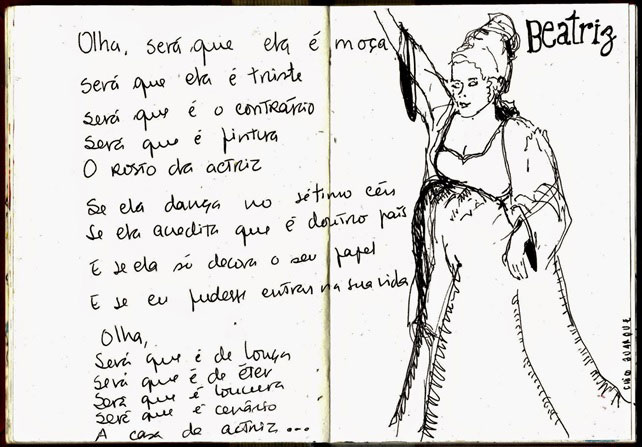 Olha, será que ela é moça
Será que ela é triste
Será que é o contrário
Será que é pintura
O rosto da actriz
Se ela dança no sétimo céu
Se ela acredita que é doutro país
E se ela só decora o seu papel
E se eu pudesse entrar na sua vida
Olha,
Será que é de louça
Será que é de éter
Será que é loucura
Será que é cenário
A casa da actriz...
Beatriz
CHICO BUARQUE